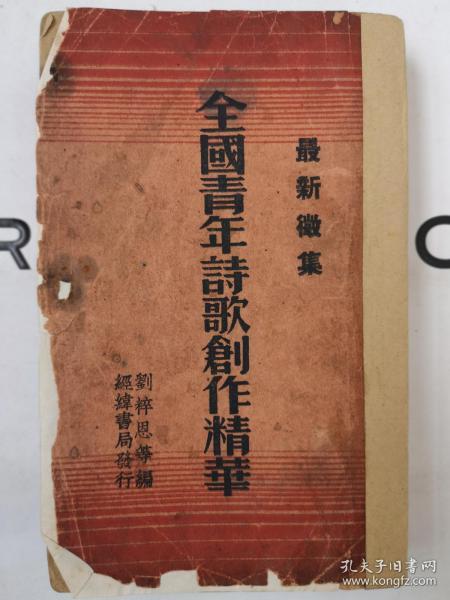 最新徵集
全國青年詩歌創作精華
劉粹恩等編
經緯書局發行
孔夫子旧书网
www.kongfz.com